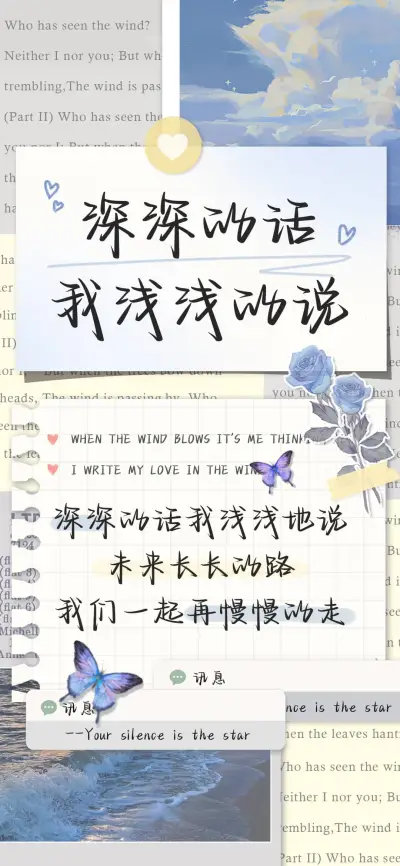 Who has seen the wind?
Neither I nor you; But wh
trembling,The wind is pas
(Part II) Who has seen the
深深的话
我浅浅的说
heads, The wind is passing by. Who
WHEN THE WIND BLOWS IT'S ME THINK
I WRITE MY LOVE IN THE WIN
深深的话我浅浅地说
未来长长的路
我们一起再慢慢的走
讯息
nce is the star
讯息
--Your silence is the star
hen the leaves hant
Who has seen the wi
Neither I nor you; Bu
embling,The wind is
Part II) Who has see